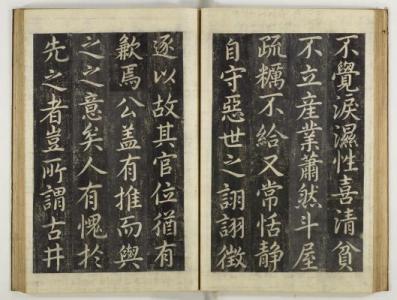 不覺淚濕性喜清貧
不立産業蕭然斗屋
疏糲不給又常恬静
自守惡世之詡詡徵
逐以故其官位猶有
歉焉公盖有推而與
之之意矣人有愧於
先之者豈所謂古井